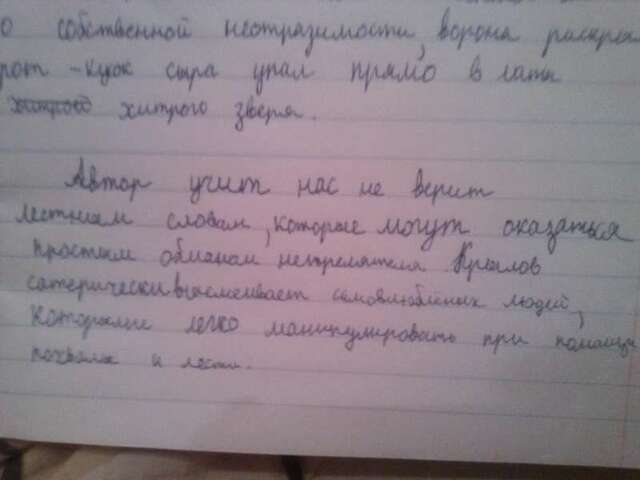 о собственной неотразимости, ворона раскры
рот - кусок сыра упал прямо в лапы
хитрого зверя.
Автор учит нас не верит
лестным словам, которые могут оказаться
простым обманом неприятеля Крылов
сатерически высмеивает самовлюблёных людей,
которыми легко манипулировать при помощи
похвалы и лести.